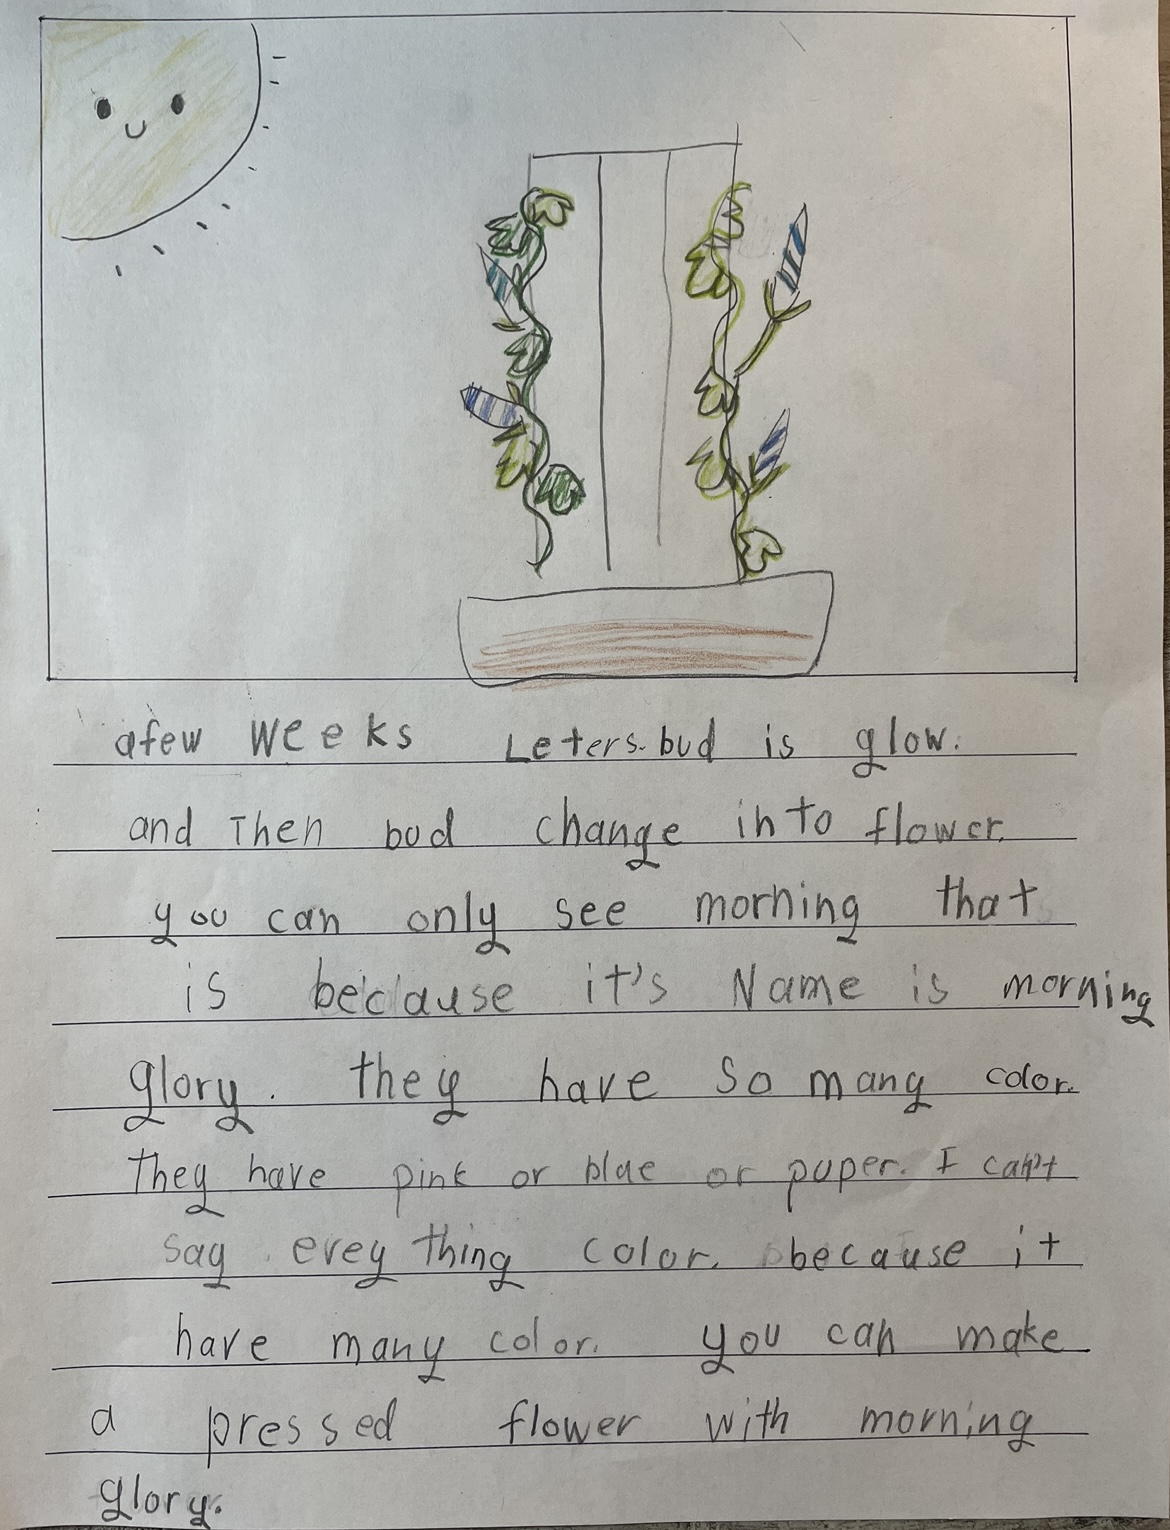 afew weeks Leters. bud is glow.
and Then bud change into flower.
you can only see morning that
is because it's Name is morning
glory. they have so many color.
They have pink or blue or puper. I can't
say evey thing color. because it
have many color. you can make
a pressed flower with morning
glory.